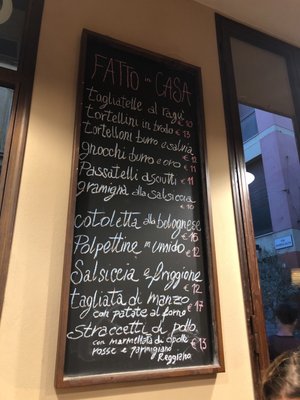 FATTO in CASA
tagliatelle al ragù
€ 10
tortellini in brodo € 13
tortelloni burro e salvia
€ 12
gnocchi burro e oro € 11
Passatelli asciutti € 11
gramigna alla salsiccia
€ 10
cotoletta alla bolognese
€ 16
Polpettine in umido
€ 12
Salsiccia e friggione
€ 12
tagliata di manzo
con patate al forno € 17
straccetti di pollo
con marmellata di cipolle € 13
rosse e parmigiano
Reggiano